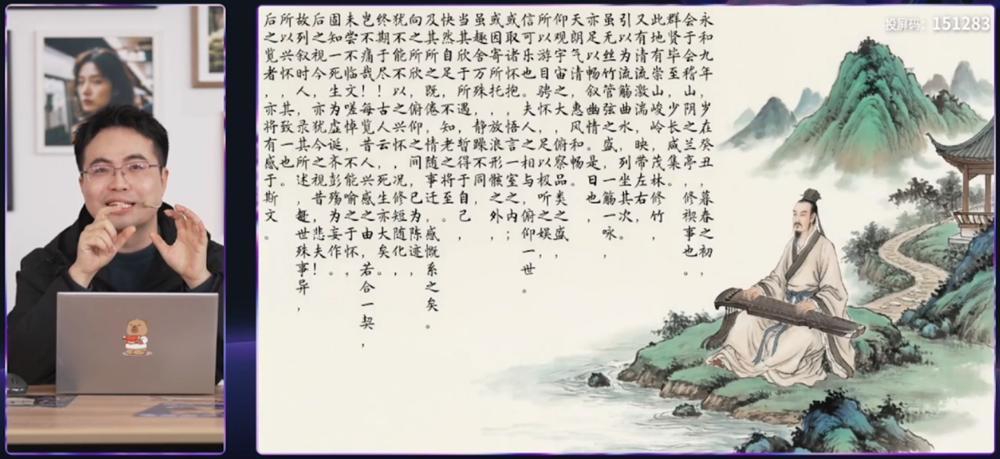 投屏码：151283
永和九年，岁在癸丑，暮春之初，
会于会稽山阴之兰亭，修禊事也。
群贤毕至，少长咸集。
此地有崇山，峻岭，茂林，修竹，
又有清流激湍，映带左右，
引以为流觞曲水，列坐其次。
虽无丝竹管弦之盛，一觞一咏，
亦足以畅叙幽情。是日也，
天朗气清，惠风和畅。
仰观宇宙之大，俯察品类之盛，
所以游目骋怀，足以极视听之娱，
信可乐也。夫人之相与，俯仰一世。
或取诸怀抱，悟言一室之内；
或因寄所托，放浪形骸之外，
虽趣舍万殊，静躁不同，
当其欣于所遇，暂得于己，
快然自足，不知老之将至；
及其所之既倦，情随事迁，感慨系之矣。
向之所欣，俯仰之间，已为陈迹，
犹不能不以之兴怀，况修短随化，
终期于尽！古人云，死生亦大矣。
岂不痛哉！每览昔人兴感之由，若合一契，
未尝不临文嗟悼，不能喻之于怀。
固知一死生为虚诞，齐彭殇为妄作，
后之视今，亦犹今之视昔，悲夫！
故列叙时人，录其所述，虽世殊事异，
所以兴怀，其致一也。
后之览者，亦将有感于斯文。